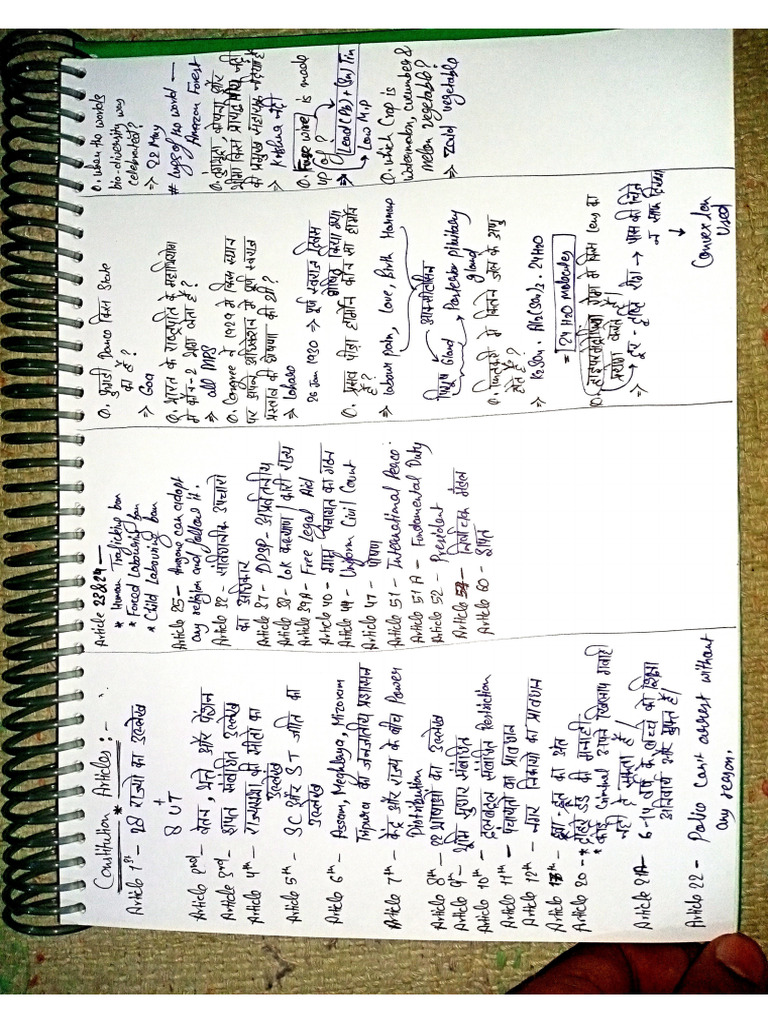 Constitution Articles :-
Article 1st - 28 राज्यो का उल्लेख
+
8 UT
Article 2nd - वेतन, भत्ते और पेंशन
Article 3rd - शपथ संबंधित उल्लेख
Article 4th - राज्यसभा की सीटो का
उल्लेख
Article 5th - SC और ST जाति का
उल्लेख
Article 6th - Assam, Meghlaya, Mizoram
Tripura का जनजातीय प्रशासन
Article 7th - केन्द्र और राज्य के बीच Power
Distribution
Article 8th - 22 भाषाओ का उल्लेख
Article 9th - भूमि सुधार संबंधित
Article 10th - दलबदल संबंधित Restriction
Article 11th - पंचायतो का प्रावधान
Article 12th - नगर निकायो का प्रावधान
Article 17th - छुआ-छूत का अंत
Article 20 - * दोहरे दंड की मनाही
* कोई Criminal अपने खिलाफ गवाही
नही दे सकता है।
Article 21A - 6-14 वर्ष के बच्चे को शिक्षा
अनिवार्य और मुफ्त है।
Article 22 - Police can't arrest without
any reason.
Article 23 & 24 -
* Human Trafficking ban
* Forced Labouring ban
* Child Labouring ban
Article 25 - Anyone can adopt
any religion and follow it.
Article 32 - संविधानिक उपचारो
का अधिकार
Article 37 - DPSP - अप्रवर्तनीय
Article 38 - लोक कल्याण / कारी राज्य
Article 39A - Free Legal Aid
Article 40 - ग्राम पंचायत का गठन
Article 44 - Uniform Civil Court
Article 47 - पोषण
Article 51 - International Peace:
Article 51A - Fundamental Duty
Article 52 - President
Article 54 - निर्वाचक मंडल
Article 60 - शपथ
Q. फुगड़ी Dance किस State
का है?
⇒ Goa
Q. भारत के राष्ट्रपति के महाभियोग
मे कौन-2 भाग लेता है?
⇒ all MPS
Q. Congree ने 1929 मे किस स्थान
पर अपने अधिवेशन मे पूर्ण स्वराज
प्रस्ताव की घोषणा की थी?
⇒ Lahore
26 Jan 1930 ⇒ पूर्ण स्वराज दिवस
घोषित किया गया
Q. प्रसव पीड़ा हार्मोन कौन सा हार्मोन
है?
⇒ labour pain, Love, Birth Harmone
ऑक्सीटोसिन
पियूष Gland → Posterior pituitary
gland
Q. फिटकरी मे कितने जल के अणु
होते है?
⇒ K2SO4. Al2(SO4)3. 24H2O
= 24 H2O molecules
Q. हाइपरमेट्रोपिया रोग मे किस lens का
प्रयोग करते है?
⇒ → दूर-दृष्टि दोष → पास की चीजे
न साफ दिखना
↓
Convex lens
Used
Q. When the worlds
bio-diversity was
celebrated?
⇒ 22 May
# Lungs of the world —
Amazon Forest
Q. तुंगभद्रा, कोयना और
भीमा किस प्रायद्वीपीय नदी
की प्रमुख सहायक नदियां है
⇒ कृष्णा नदी
Q. Fuse wire is made
up of?
⇒ Lead (Pb) + (Sn) Tin
→ Low M.P
Q. which Crop is
watermelon, cucumber &
melon vegetable?
⇒ Zaid vegetable